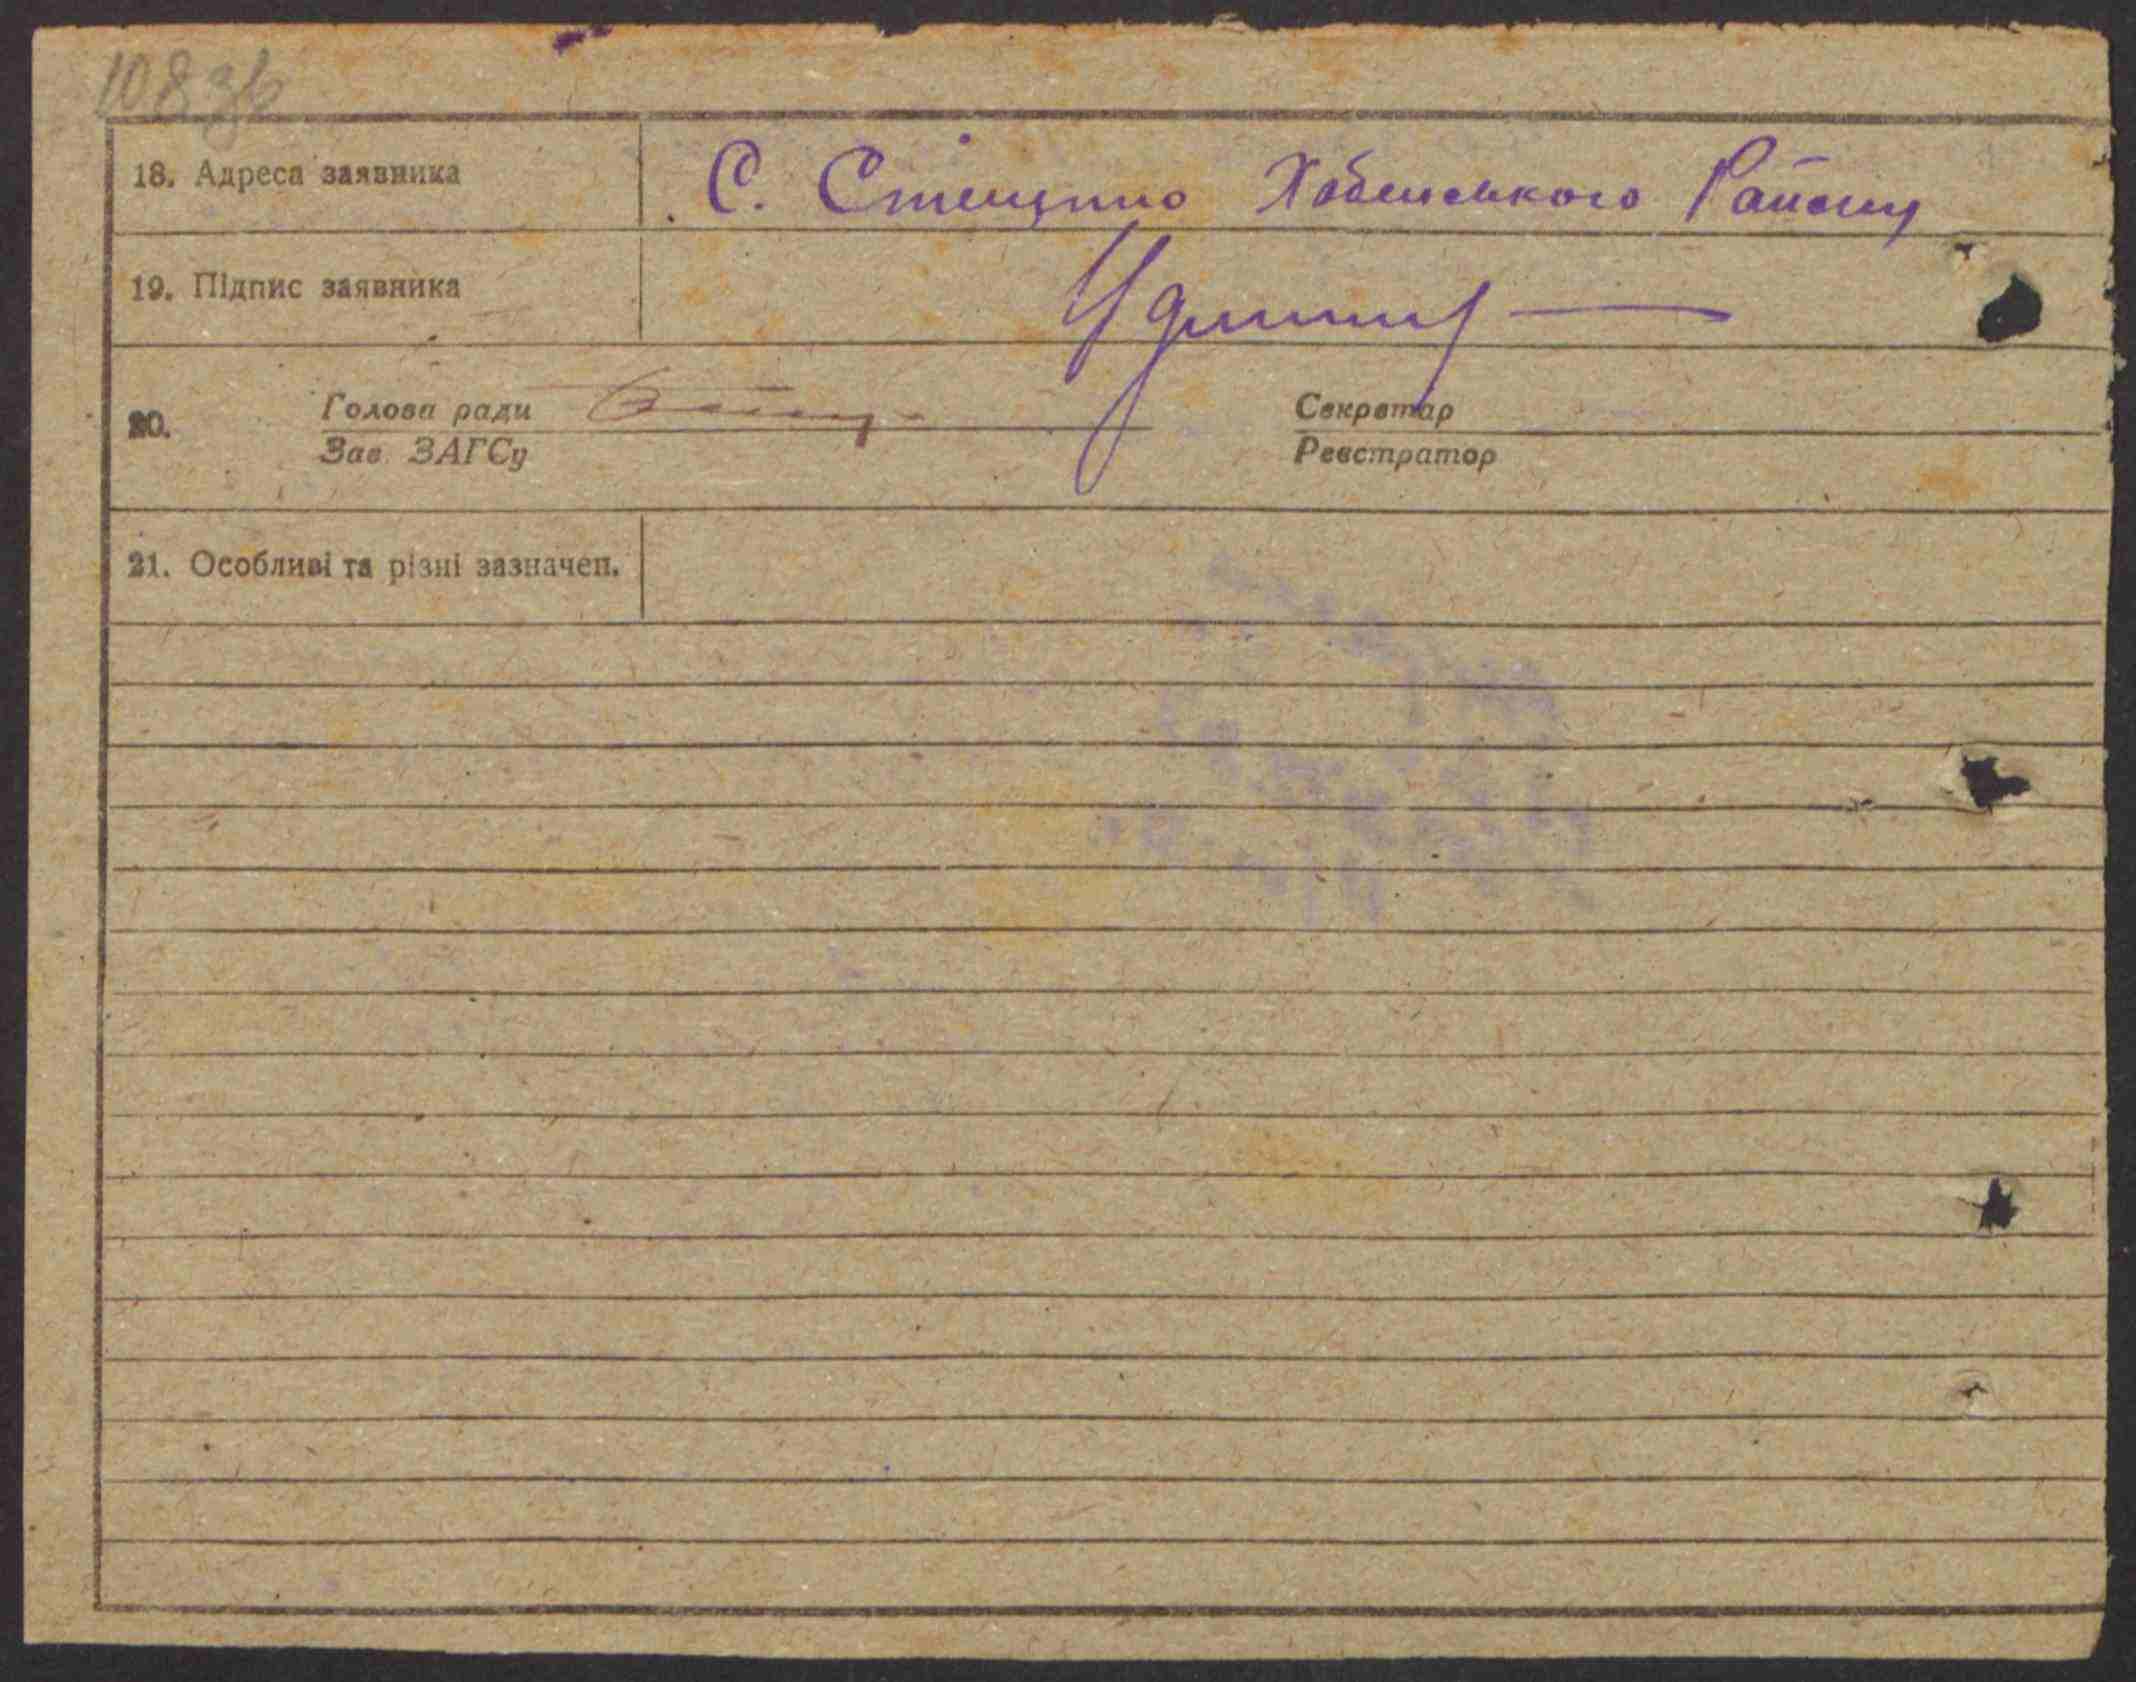 108зв
18. Адреса заявника С. Стещино Хабенського Району
19. Підпис заявника
20. Голова ради Секретар
Зав. ЗАГСу Реєстратор
21. Особливі та різні зазначен.